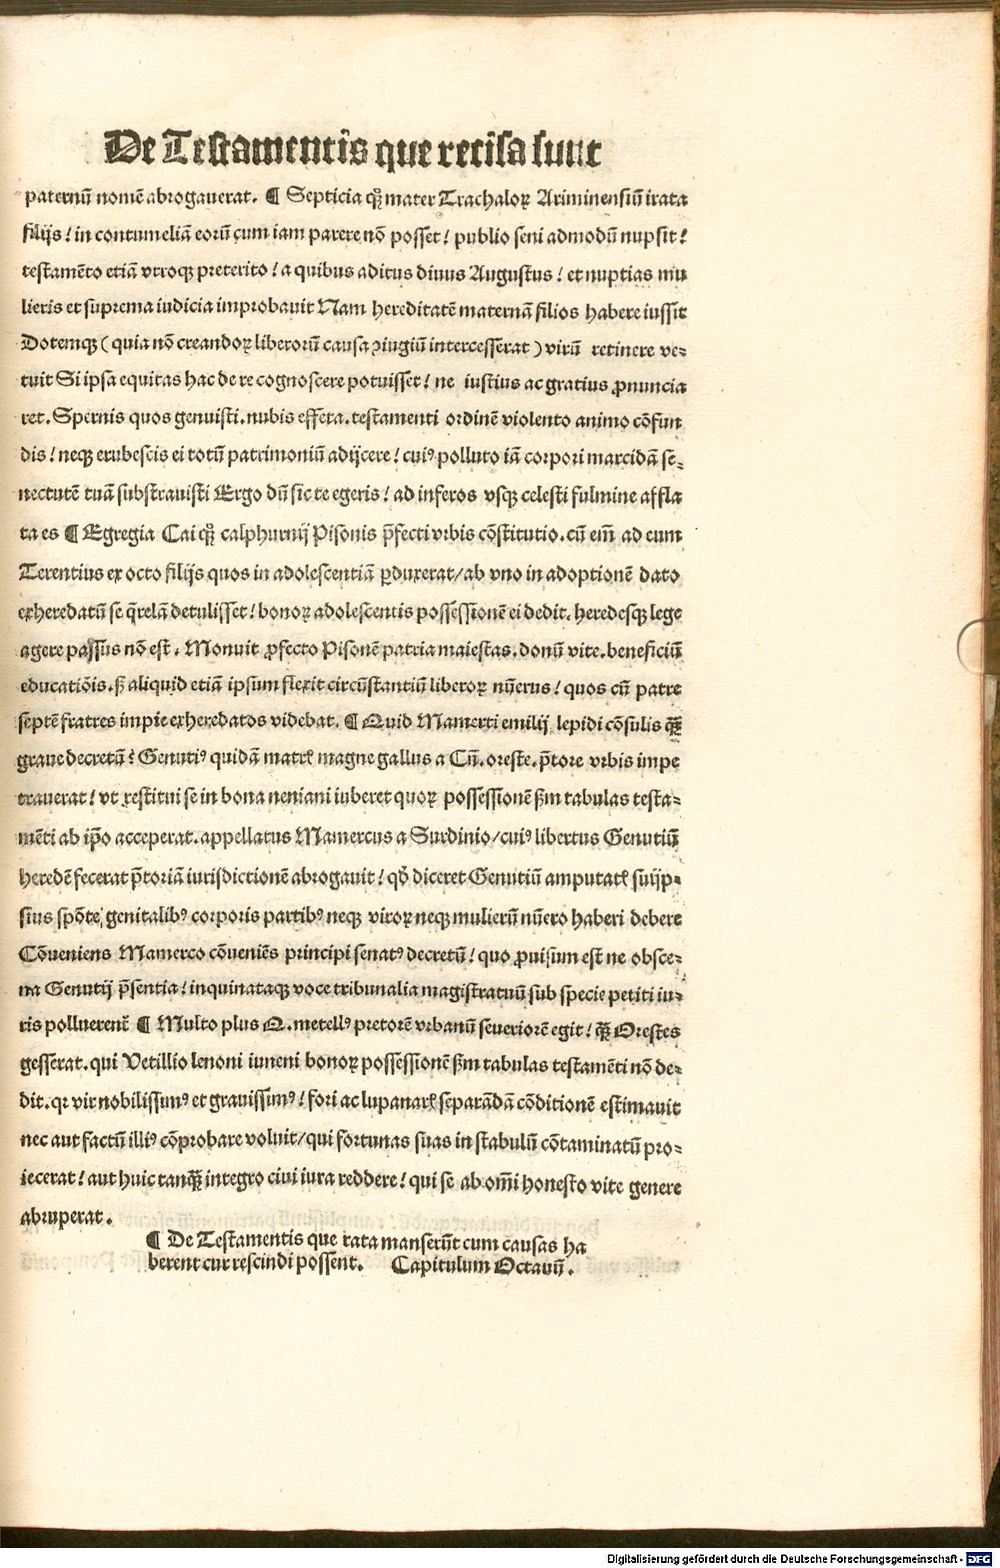 De Testamentis que recisa sunt
paternū nomē abrogauerat. ¶ Septicia qꝫ mater Trachaloꝝ Ariminensiū irata
filijs/ in contumeliā eorū cum iam parere nō posset/ publio seni admodū nupsit/
testamēto etiā vtroqꝫ preterito/ a quibus aditus diuus Augustus/ et nuptias mu
lieris et suprema iudicia improbauit Nam hereditatē maternā filios habere iussit
Dotemqꝫ (quia nō creandoꝝ liberorū causa ꝯiugiū intercesserat) virū retinere ve⸗
tuit Si ipsa equitas hac de re cognoscere potuisset/ ne iustius ac gratius ꝓnuncia
ret. Spernis quos genuisti. nubis effeta. testamenti ordinē violento animo cōfun
dis/ neqꝫ erubescis ei totū patrimoniū adijcere/ cuiꝰ polluto iā corpori marcidā se⸗
nectutē tuā substrauisti Ergo dū sic te egeris/ ad inferos vsqꝫ celesti fulmine affla
ta es ¶ Egregia Cai qꝫ calphurnij Pisonis p̄fecti vrbis cōstitutio. cū em̄ ad eum
Terentius ex octo filijs quos in adolescentiā ꝑduxerat/ ab vno in adoptionē dato
exheredatū se q̄relā detulisset/ bonoꝝ adolescentis possessionē ei dedit. heredesqꝫ lege
agere passus nō est. Monuit ꝓfecto Pisonē patria maiestas. donū vite. beneficiū
educatiōis. sꝫ aliquid etiā ipsum flexit circūstantiū liberoꝝ nūerus/ quos cū patre
septē fratres impie exheredatos videbat. ¶ Quid Mamerti emilij lepidi cōsulis qꝫ̄
graue decretū? Genutiꝰ quidā matrꝭ magne gallus a Cn̄. oreste. p̄tore vrbis impe
trauerat/ vt restitui se in bona neniani iuberet quoꝝ possessionē sꝫm tabulas testa⸗
mēti ab ip̄o acceperat. appellatus Mamercus a Surdinio/ cuiꝰ libertus Genutiū
heredē fecerat p̄toriā iurisdictionē abrogauit/ qꝙ diceret Genutiū amputatꝭ suijp⸗
sius spōte genitalibꝰ corporis partibꝰ neqꝫ viroꝝ neqꝫ mulierū nūero haberi debere
Cōueniens Mamerco cōueniēs principi senatꝰ decretū/ quo ꝓuisum est ne obsce⸗
na Genutij p̄sentia/ inquinataqꝫ voce tribunalia magistratuū sub specie petiti iu⸗
ris polluerenť ¶ Multo plus Q. metellꝰ pretorē vrbanū seueriorē egit/ qꝫ̄ Orestes
gesserat. qui Vetillio lenoni iuueni bonoꝝ possessionē sꝫm tabulas testamēti nō de⸗
dit. qꝛ vir nobilissimꝰ et grauissimꝰ/ fori ac lupanarꝭ separādā cōditionē estimauit
nec aut factū illiꝰ cōprobare voluit/ qui fortunas suas in stabulū cōtaminatū pro⸗
iecerat/ aut huic tanqꝫ̄ integro ciui iura reddere/ qui se ab om̄i honesto vite genere
abruperat.
¶ De Testamentis que rata manserūt cum causas ha
berent cur rescindi possent. Capitulum Octauū.
Digitalisierung gefördert durch die Deutsche Forschungsgemeinschaft - DFG